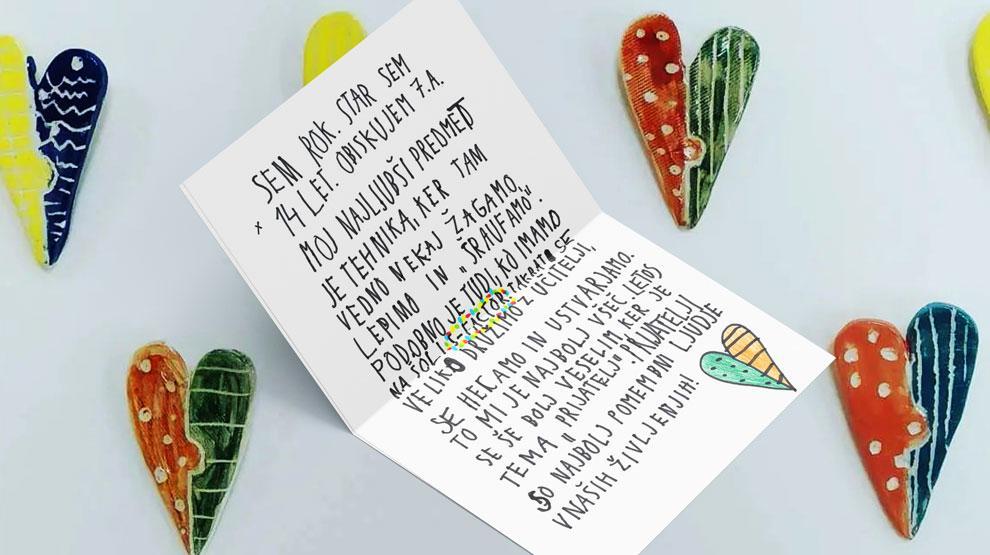 SEM ROK. STAR SEM
14 LET. OBISKUJEM 7.A.
MOJ NAJLJUBŠI PREDMET
JE TEHNIKA, KER TAM
VEDNO NEKAJ ŽAGAMO,
LEPIMO IN "ŠRAUFAMO".
PODOBNO JE TUDI, KO IMAMO
NA ŠOLI FACTOR. TAKRAT SE
VELIKO DRUŽIMO Z UČITELJI,
SE HECAMO IN USTVARJAMO.
TO MI JE NAJBOLJ VŠEČ. LETOS
SE ŠE BOLJ VESELIM KER JE
TEMA "PRIJATELJI". PRIJATELJI
SO NAJBOLJ POMEMBNI LJUDJE
V NAŠIH ŽIVLJENJIH!